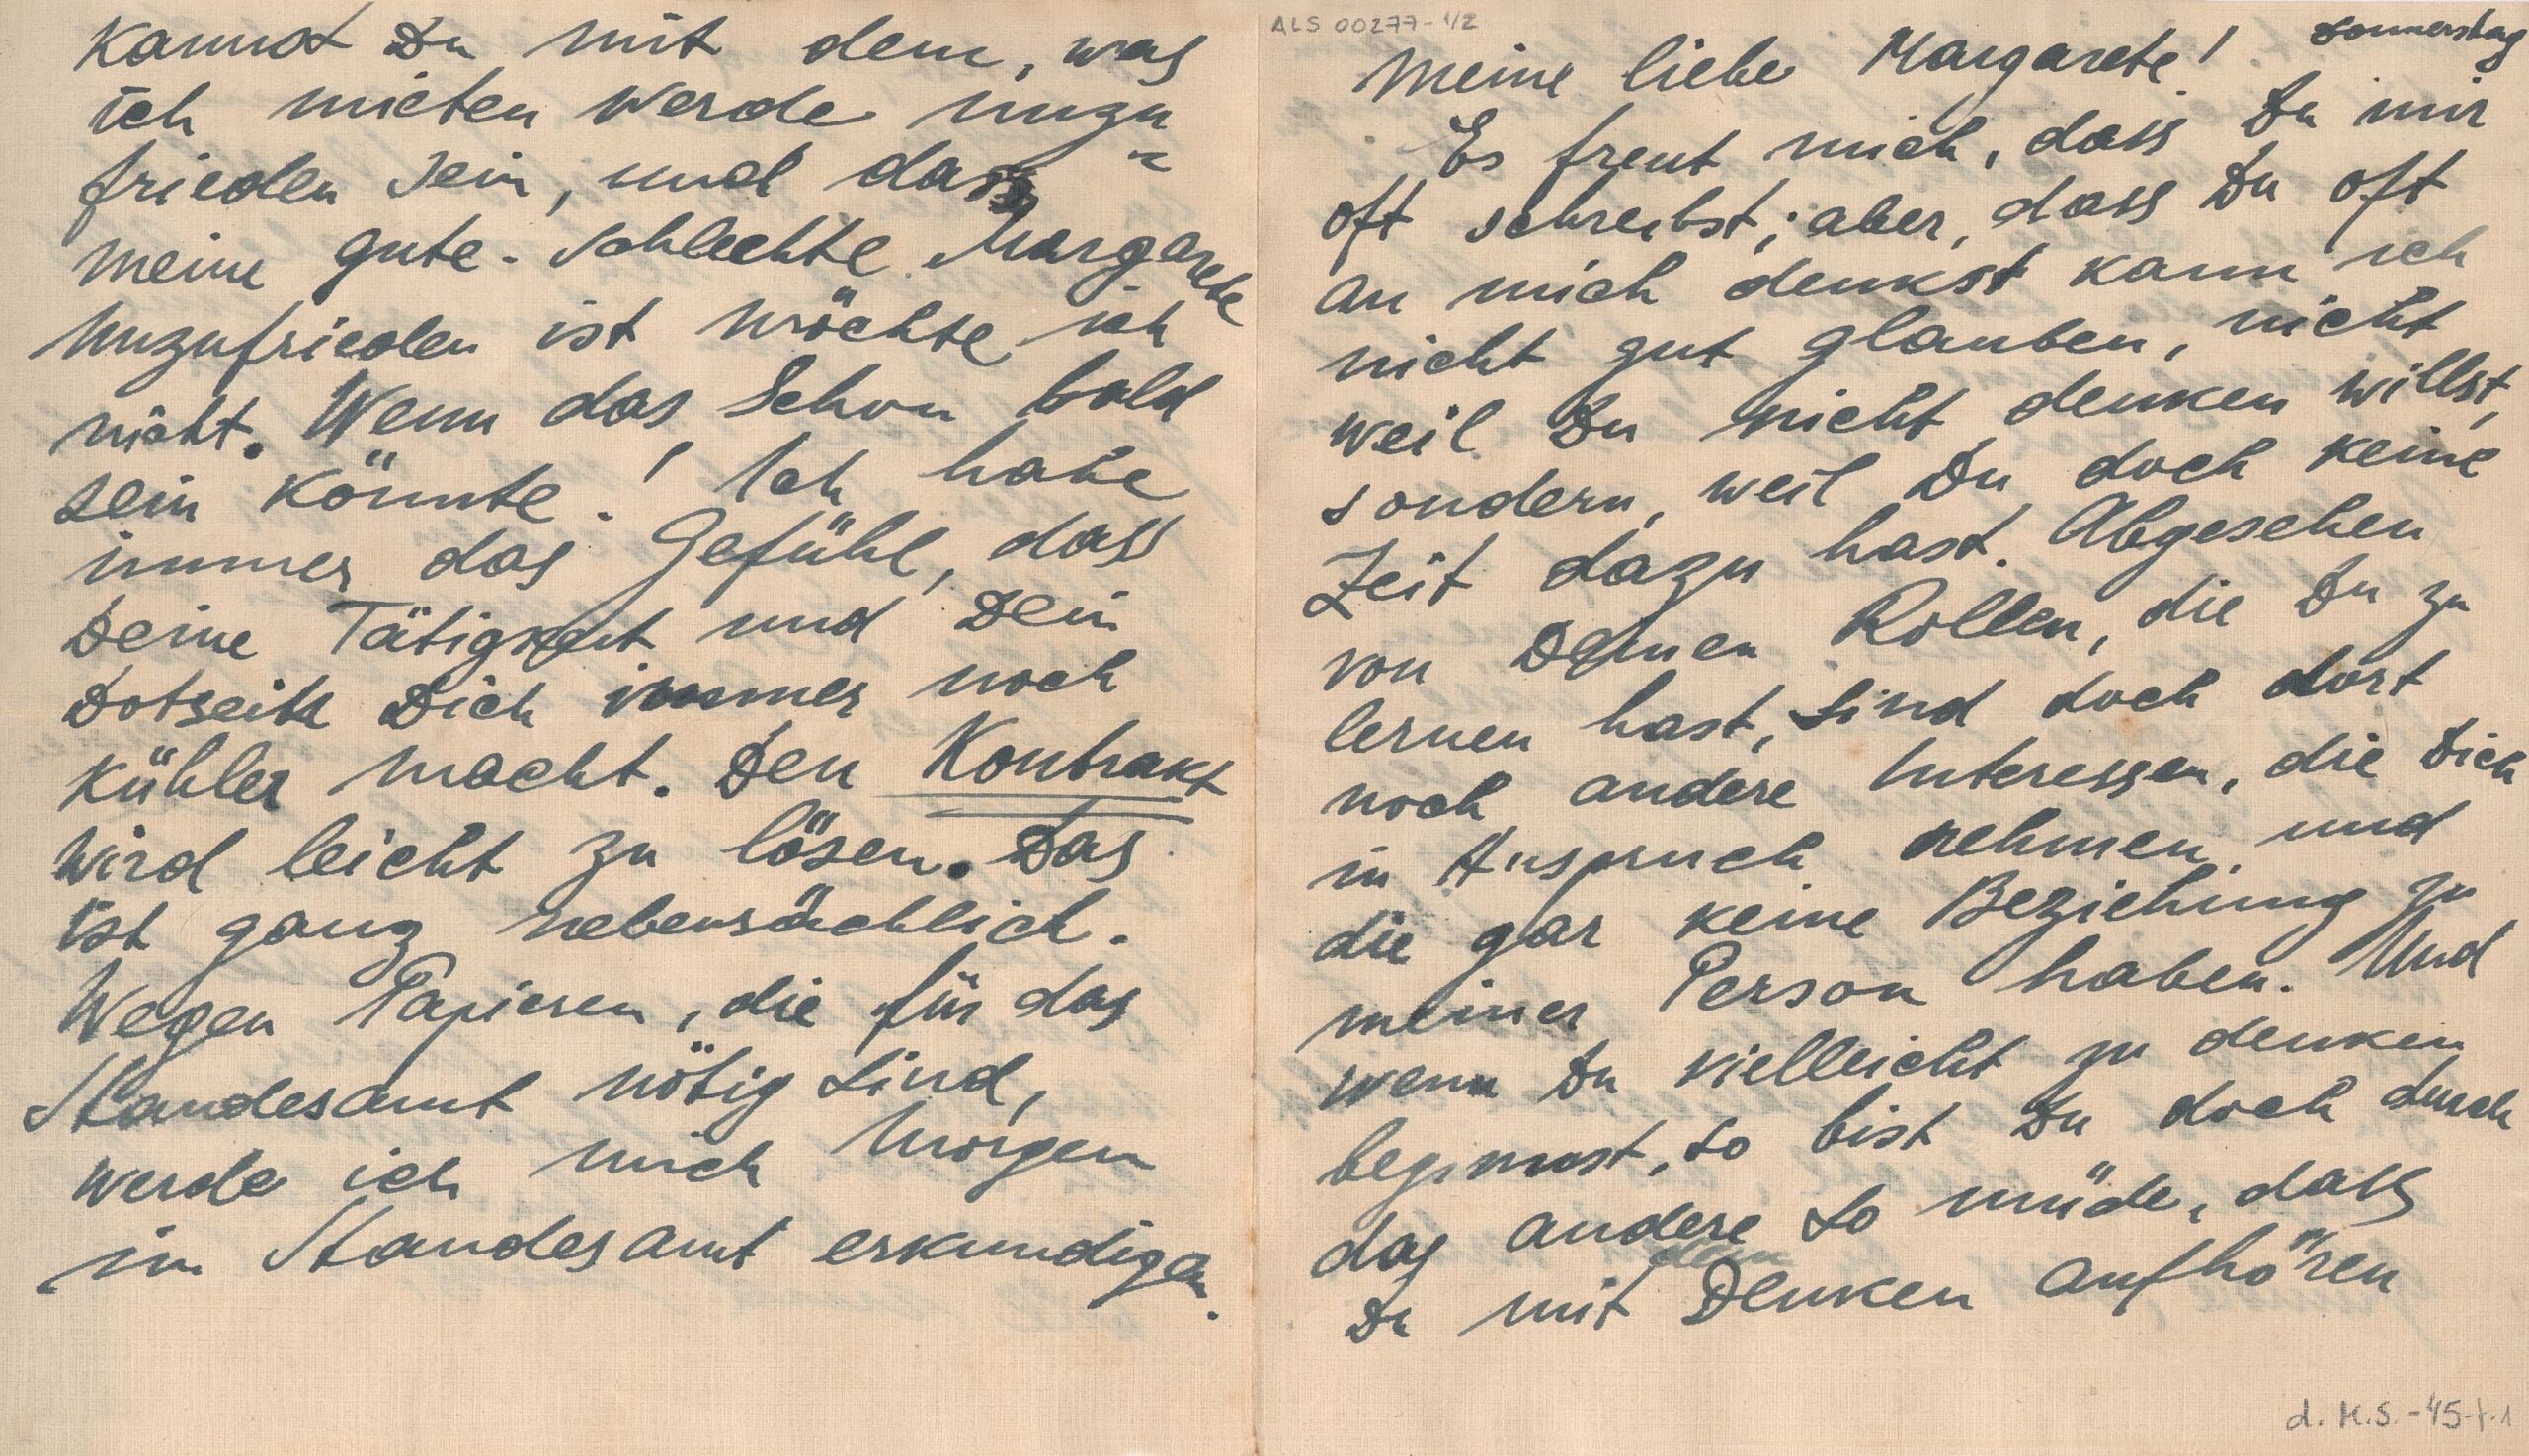 ALS 00277-1/2
Donnerstag
Meine liebe Margarete!
Es freut mich, dass Du mir
oft schreibst; aber, dass Du oft
an mich denkst kann ich
nicht gut glauben, nicht
weil Du nicht denken willst,
sondern, weil Du doch keine
Zeit dazu hast. Abgesehen
von Deinen Rollen, die Du zu
lernen hast, sind doch dort
noch andere Interessen, die Dich
in Anspruch nehmen, und
die gar keine Beziehung zu
meiner Person haben. Und
wenn Du vielleicht zu denken
beginnst, so bist Du doch durch
das andere so müde, dass
Du mit dem Denken aufhören
d. M.S.-45-f.1
kannst Du mit dem, was
ich mieten werde unzu=
frieden sein, und dass
meine gute-schlechte Margarete
unzufrieden ist möchte ich
nicht. Wenn das schon bald
sein könnte! Ich habe
immer das Gefühl, dass
Deine Tätigkeit und Dein
Dotsein Dich immer noch
kühler macht. Den Kontrakt
wird leicht zu lösen. Das
ist ganz nebensächlich.
Wegen Papieren, die für das
Standesamt nötig sind,
werde ich mich morgen
im Standesamt erkundigen.